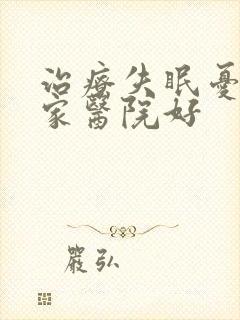 治療失眠憂
家醫院好
嚴弘